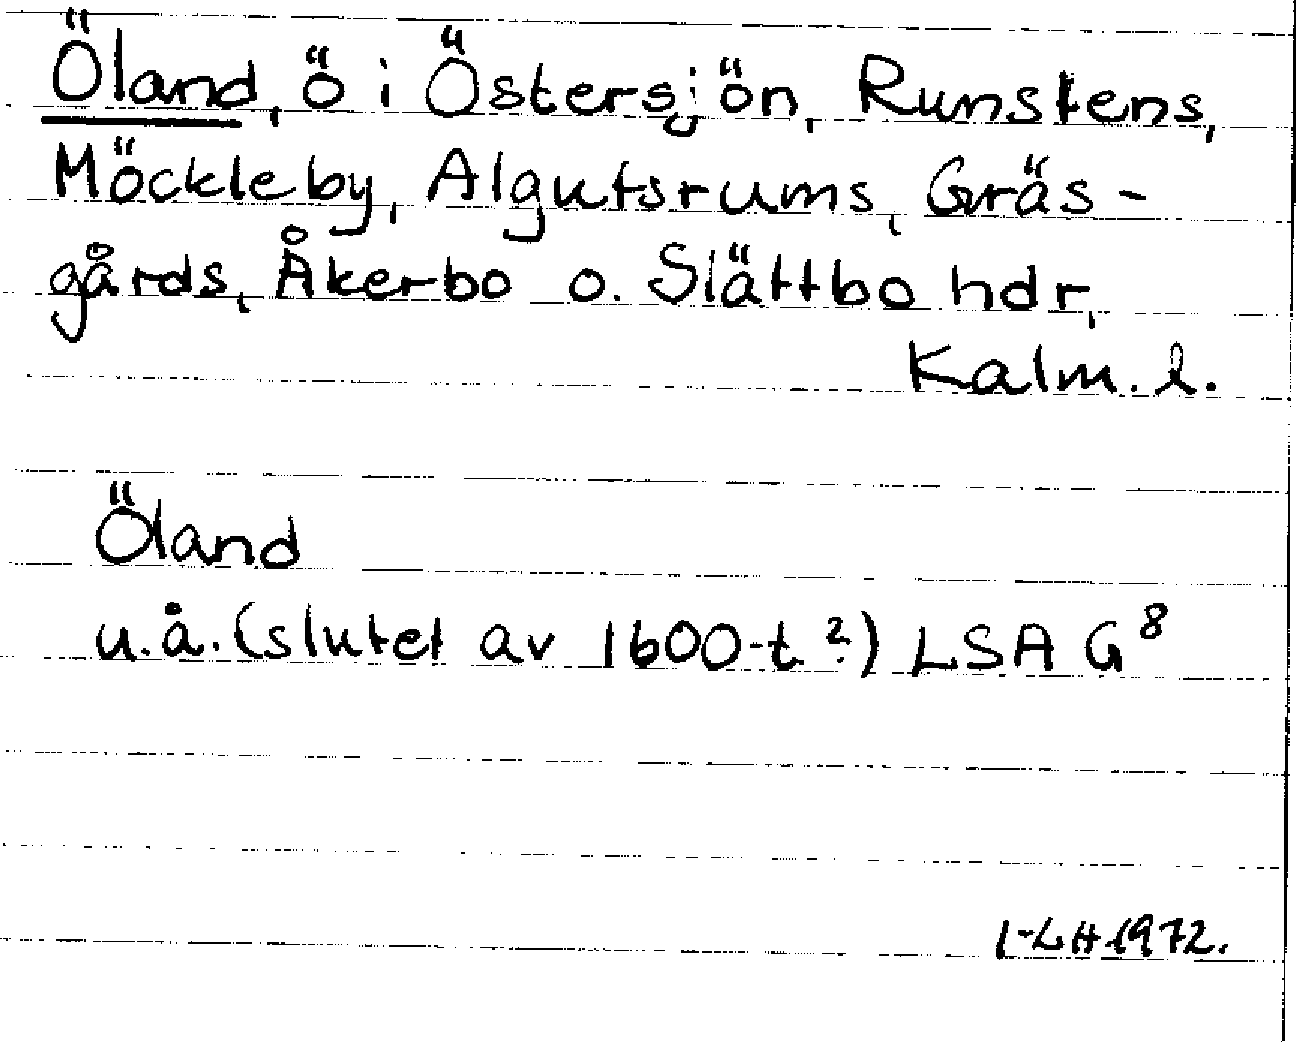 Öland, ö i Östersjön, Runstens,
Möckleby, Algutsrums, Gräs-
gårds, Åkerbo o. Slättbo hdr,
Kalm. l.
Öland
u.å. (slutet av 1600-t?) LSA G⁸
I-LH 1972.